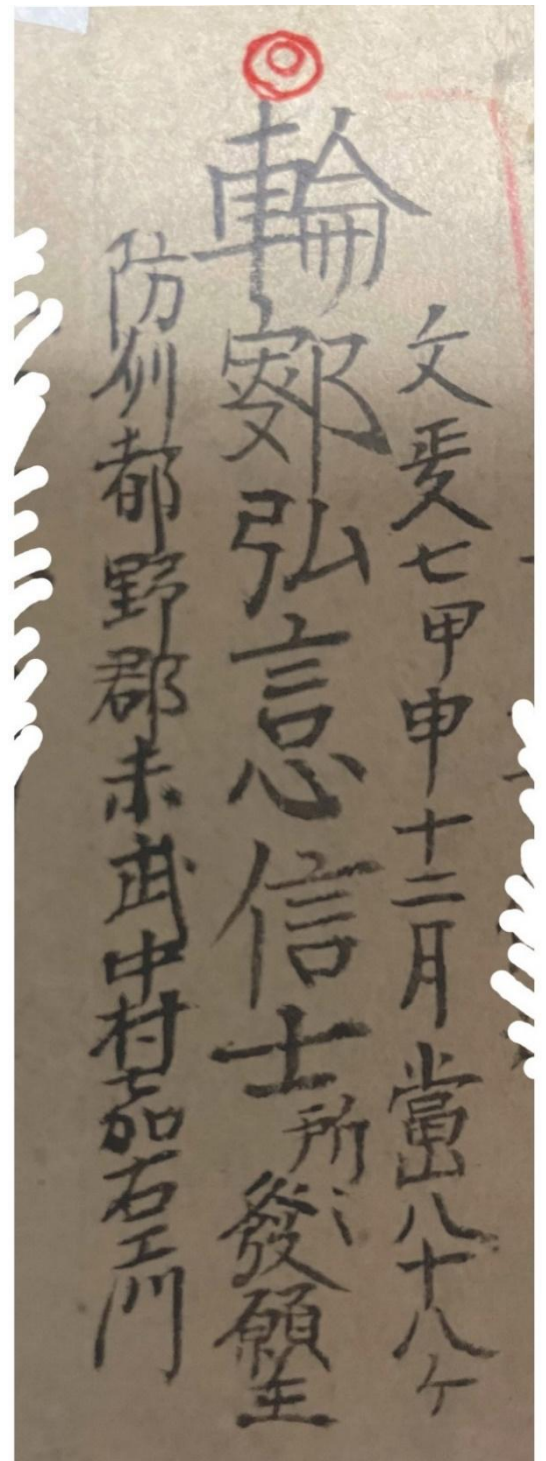 文政七甲申十二月當山八十八ケ
輪弘意信士
所〻發願主
防州都野郡末武中村嘉右エ門